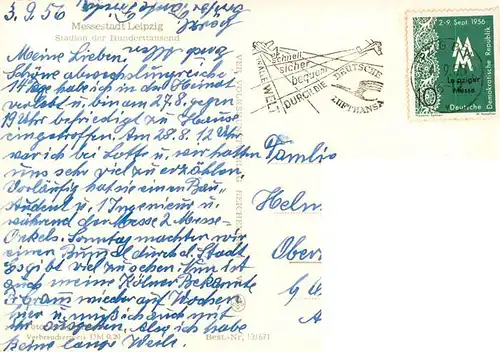 3.9.56
Messestadt Leipzig
Stadion der Hunderttausend
Meine Lieben.
Schöne abwechslungsreiche
14 Tage habe ich in der Heimat
verlebt u. bin am 27.8. gegen
19 Uhr befriedigt zu Hause
eingetroffen. Am 28.8. 12 Uhr
war ich bei Lotte u. wir hatten
uns sehr viel zu erzählen.
Vorläufig hat sie einen Bau-
student u. 1 Ingenieur u.
während der Messe 2 Messe-
Onkels. Sonntag machten wir
einen Bummel durch d. Stadt
Es gibt viel zu sehen. Nun ist
auch meine Kölner Bekannte
wieder auf Wochen
hier u. muß ich auch mit
ihr ausgehen. Also ich habe
keine lange Weile.
Verbraucherpreis DM 0,20
Best.-Nr. 13/671
schnell
sicher
bequem
DURCH DIE
DEUTSCHE
LUFTHANSA
2.-9. Sept. 1956
MM
Leipziger
Messe
10
Deutsche Demokratische Republik
Familie
Helm
Ober